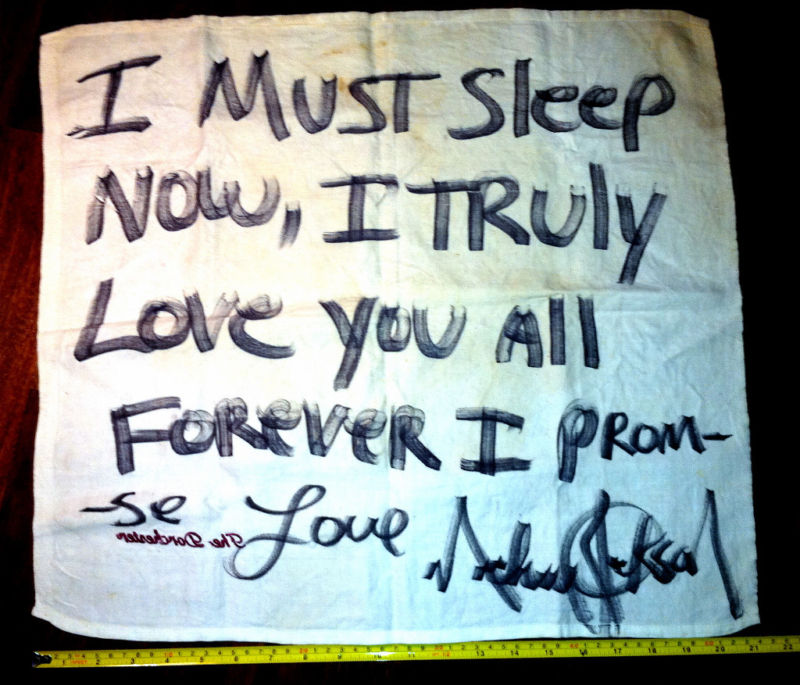 I MUST Sleep
NOW, I TRuly
LOVE YOU All
FOREVER I PROM-
-se Love Michael Jackson
The Dorchester
1 2 3 4 5 6 7 8 9 10 11 12 13 14 15 16 17 18 19 20 21 22